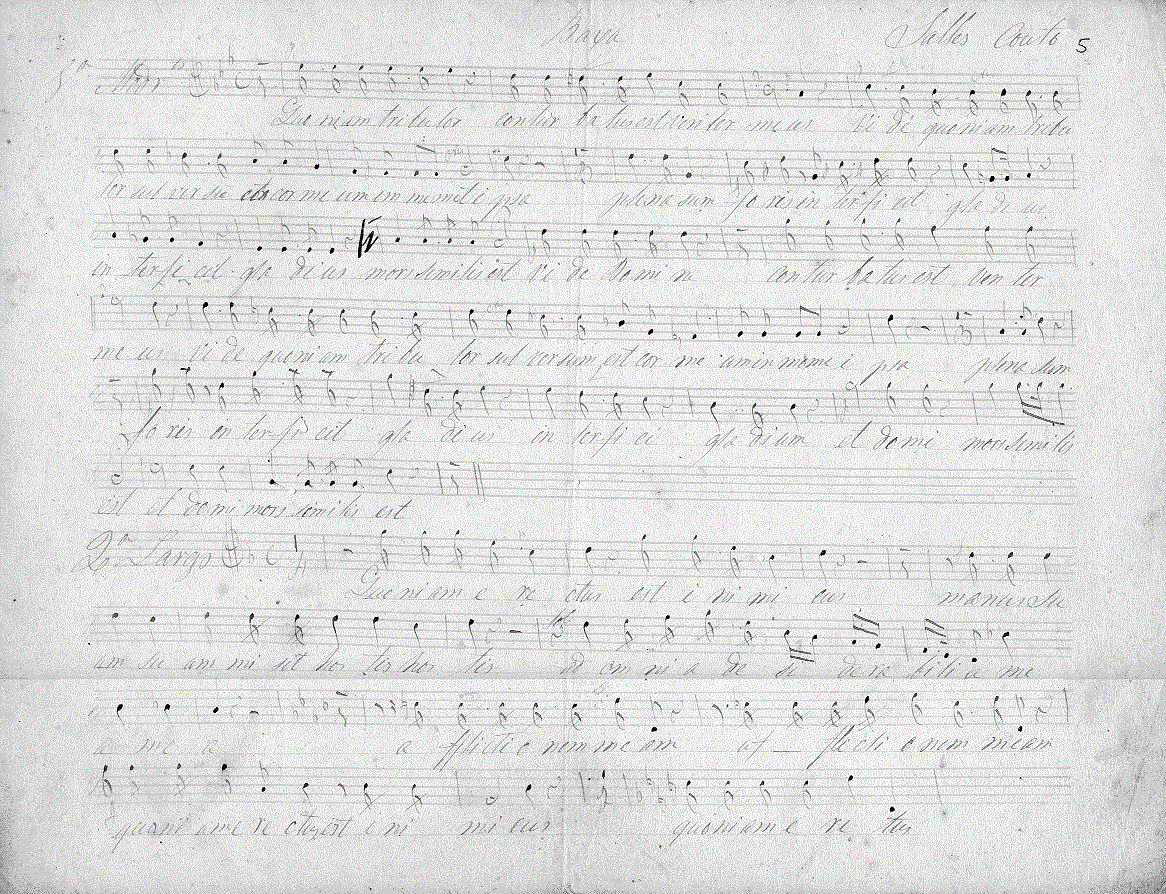 Baxa Salles Couto 5
1ª
Queniam tribulor contur batus est venter meus Vi de queniam tribu
lor sub ver sum est cor me um em memet i psa plena sum fo ris in terfi cit gla de us
in terfi cit gla dius mors similis est Vi de Domi ne contur batus est ven ter
me us Vi de queniam tri bu lor sub versum est cor me um in meme i psa plena sum
fo ris in ter fi cit gla di us in terfi ci gla diam et domi mors similis
est et domi mors similis est
2ª Largo
Queniam e re ctus est i ni mi cus manus su
am su am mi sit hos tis hos tis ad om ni a de si dera bili a me
a me a a fflicti o nem me am af - flicti o nem meam
quoni am e re ctus est i ni mi cus quoniam e re tus